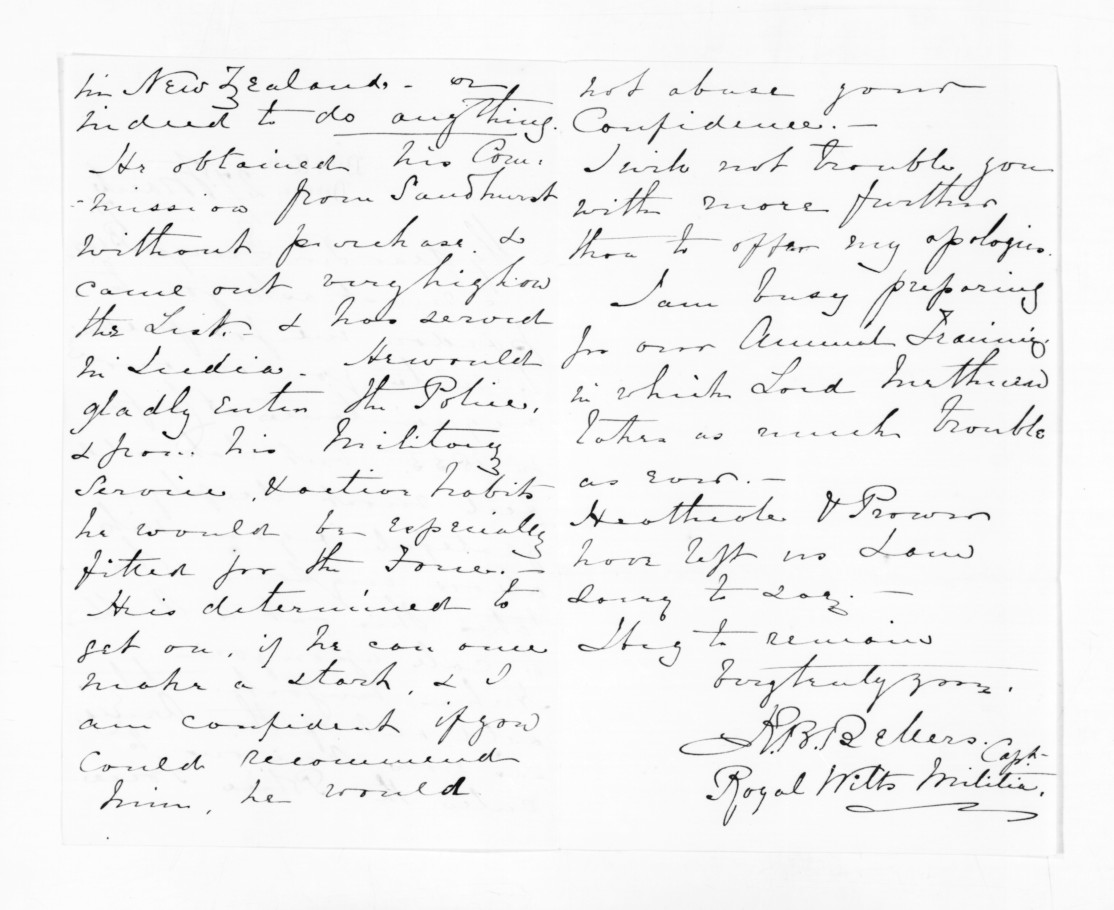 in New Zealand. - or
indeed to do anything.
He obtained his Com:
-mission from Sandhurst
without purchase. &
came out very high on
the List. - & has served
in India. He would
gladly enter the Police,
& from his Military
Service, & active habits
he would be especially
fitted for the Force. -
He is determined to
get on, if he can once
make a start, & I
am confident if you
could recommend
him, he would
not abuse your
Confidence. -
I will not trouble you
with more further
than to offer my apologies.
I am busy preparing
for our Annual Training.
in which Lord Methuen
takes as much trouble
as ever. -
Heathcote & Prower
have left us I am
sorry to say. -
I beg to remain
Very truly yours.
Capt.
Royal Wilts Militia.